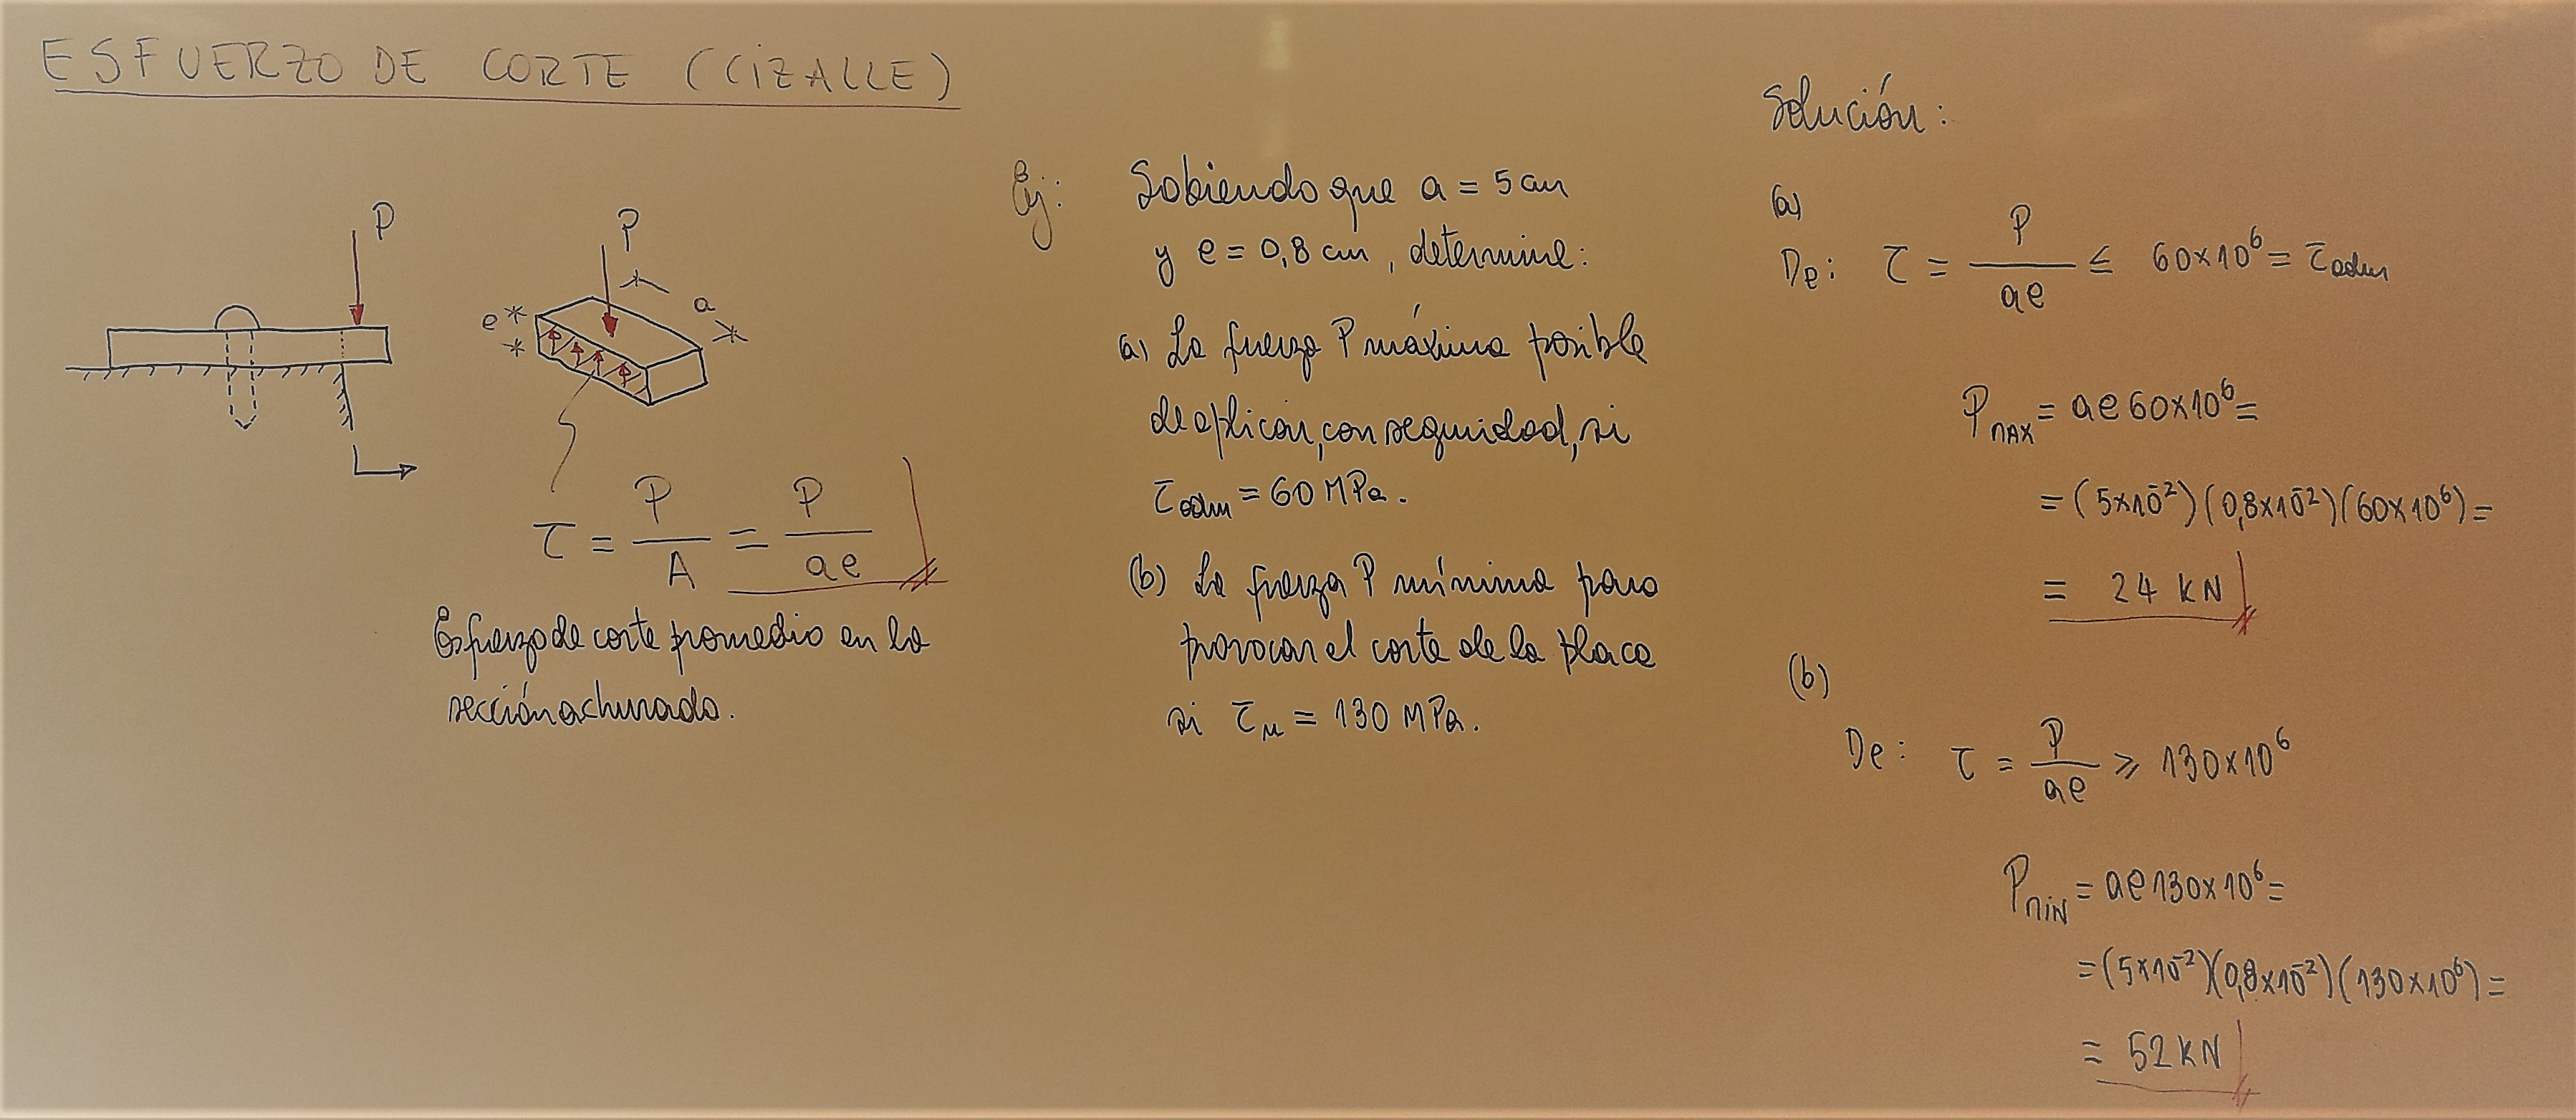 ESFUERZO DE CORTE (CIZALLE)
P
P
a
e
τ = P/A = P/ae
Esfuerzo de corte promedio en la
sección achurada.
Ej: Sabiendo que a = 5 cm
y e = 0,8 cm, determine:
a) La fuerza P máxima posible
de aplicar, con seguridad, si
τadm = 60 MPa.
(b) La fuerza P mínima para
provocar el corte de la placa
si τu = 130 MPa.
Solución:
(a)
De: τ = P/ae ≤ 60x10⁶ = τadm
PMAX = ae 60x10⁶ =
= (5x10⁻²)(0,8x10⁻²)(60x10⁶) =
= 24 KN
(b)
De: τ = P/ae ≥ 130x10⁶
PMIN = ae 130x10⁶ =
= (5x10⁻²)(0,8x10⁻²)(130x10⁶) =
= 52 KN